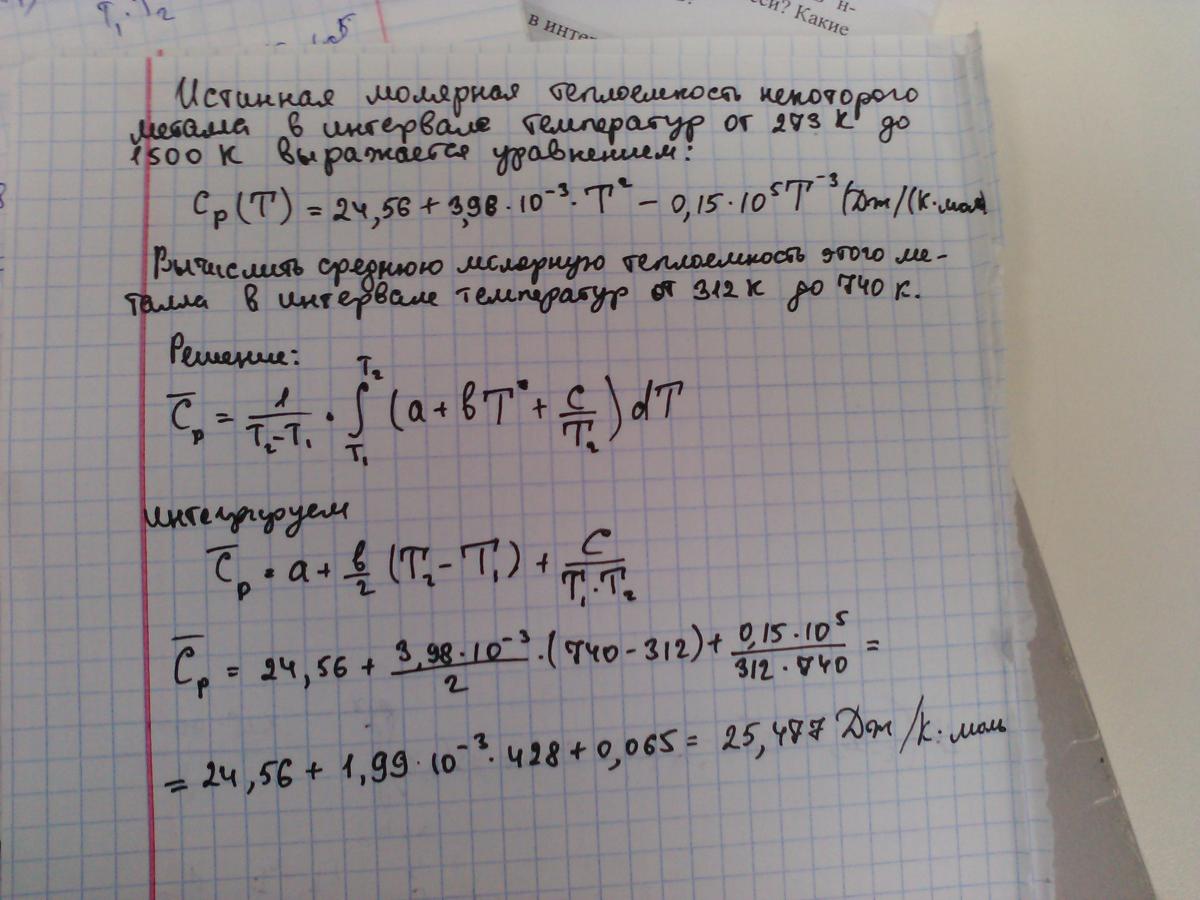 T₁·T₂
н-
си? Какие
в инте
Истинная молярная теплоемкость некоторого
метала в интервале температур от 273 К до
1500 К выражается уравнением:
Cp(T) = 24,56 + 3,98·10⁻³·T² − 0,15·10⁵T⁻³ (Дж/(К·мол
Вычислить среднюю молярную теплоемкость этого ме-
талла в интервале температур от 312 К до 740 К.
Решение:
C̅p = 1/(T₂−T₁) · ∫_{T₁}^{T₂} (a + bT + c/T₂) dT
Интегрируем
C̅p = a + b/2 (T₂ − T₁) + C/(T₁·T₂)
C̅p = 24,56 + 3,98·10⁻³/2 ·(740−312) + 0,15·10⁵/(312·740) =
= 24,56 + 1,99·10⁻³·428 + 0,065 = 25,477 Дж/К·моль